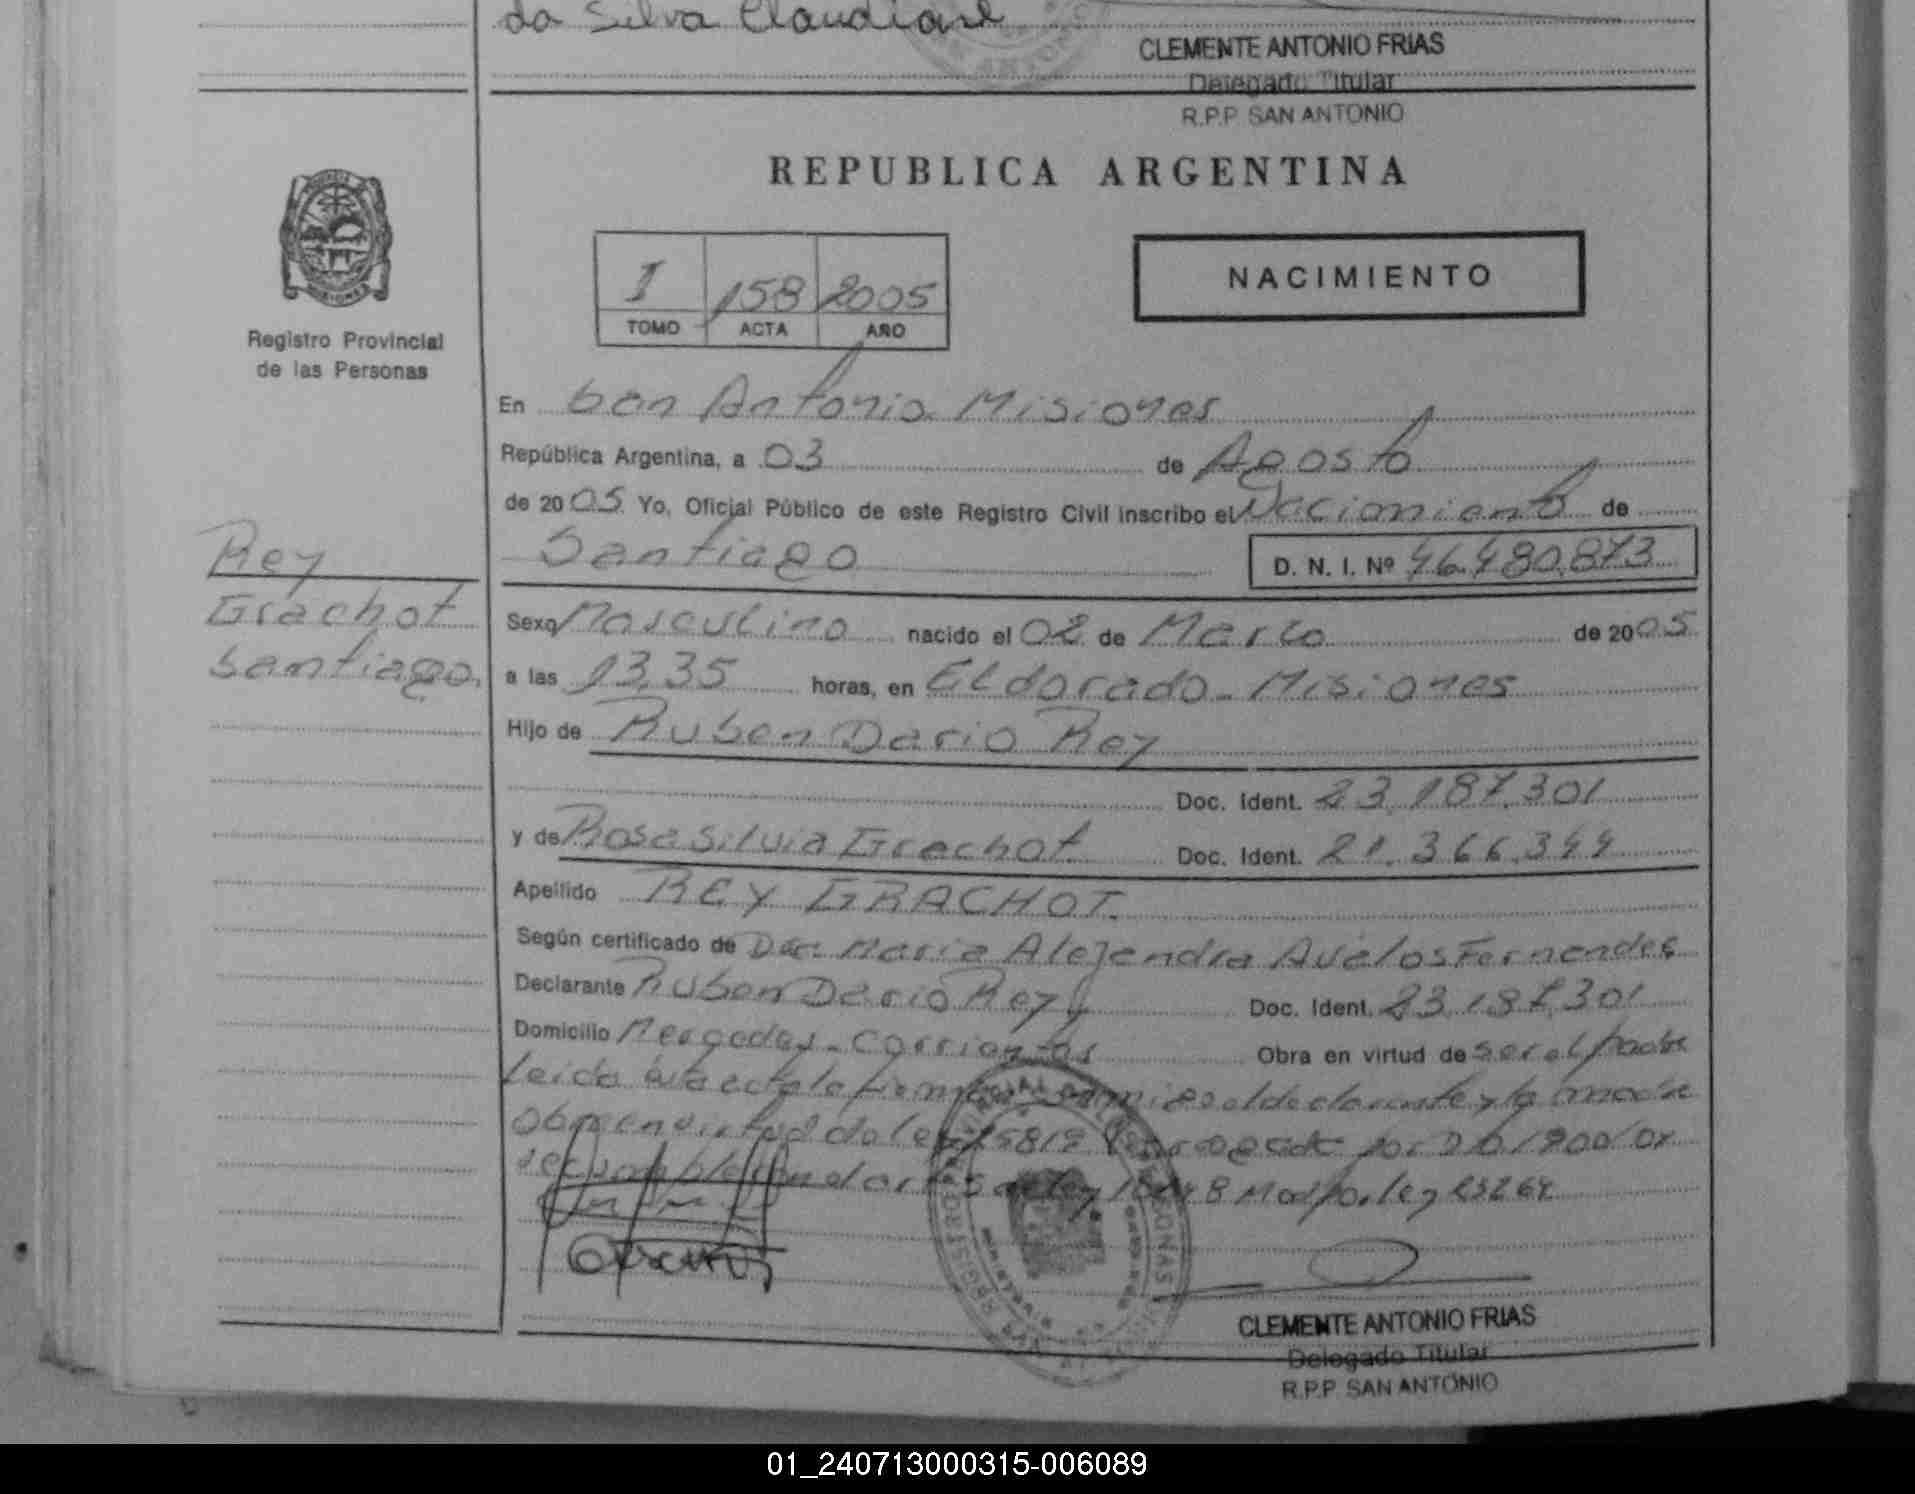 da Silva Claudiane
CLEMENTE ANTONIO FRIAS
Delegado Titular
R.P.P. SAN ANTONIO
REPUBLICA ARGENTINA
I 158 2005
TOMO ACTA AÑO
NACIMIENTO
Registro Provincial
de las Personas
En San Antonio Misiones
República Argentina, a 03 de Agosto
de 2005 Yo, Oficial Público de este Registro Civil inscribo el Nacimiento de
Santiago D. N. I. Nº 46.480.873
Rey
Grachot
Santiago
Sexo Masculino nacido el 02 de Marzo de 2005
a las 13,35 horas, en Eldorado - Misiones
Hijo de Ruben Dario Rey
Doc. Ident. 23.187.301
y de Rosa Silvia Grachot Doc. Ident. 21.366.344
Apellido REY GRACHOT.
Según certificado de Dra. Maria Alejandra Avelos Fernandes
Declarante Ruben Dario Rey Doc. Ident. 23.187.301
Domicilio Corrientes Obra en virtud de ser el padre
Leida el declarante y la madre
Obra en virtud de ley por
de ley ley 23264
CLEMENTE ANTONIO FRIAS
Delegado Titular
R.P.P. SAN ANTONIO
01_240713000315-006089